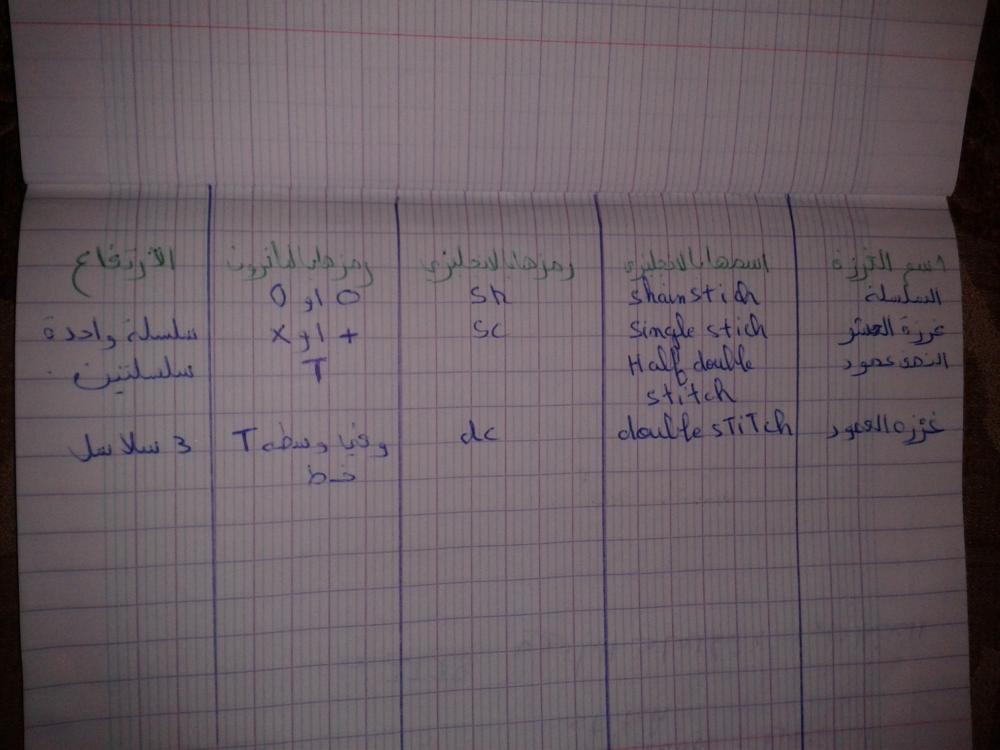 اسم الغرزة اسمها بالانجليزي رمزها بالانجليزي رمزها بالباترون الارتفاع
السلسلة shain stich Sh O او 0
غرزة الحشو Single stich SC + او X سلسلة واحدة
النصف عمود Half double T سلسلتين
stitch
غرزه العمود double sTiTch dc T وفيا وسطه 3 سلاسل
خط